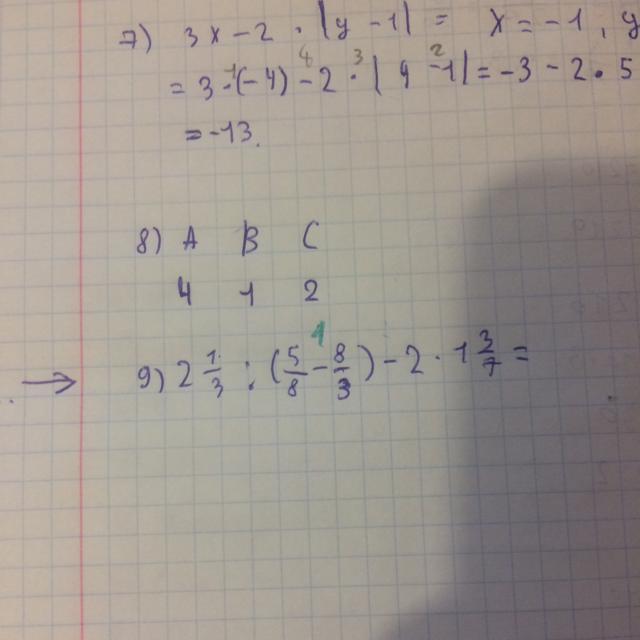 7) 3x - 2 · |y - 1| = x = -1, y
= 3 · (-4) - 2 · |4 - 1| = -3 - 2 · 5
= -13.
8) A B C
4 1 2
1
→ 9) 2 1/3 : (5/8 - 8/3) - 2 · 1 3/7 =